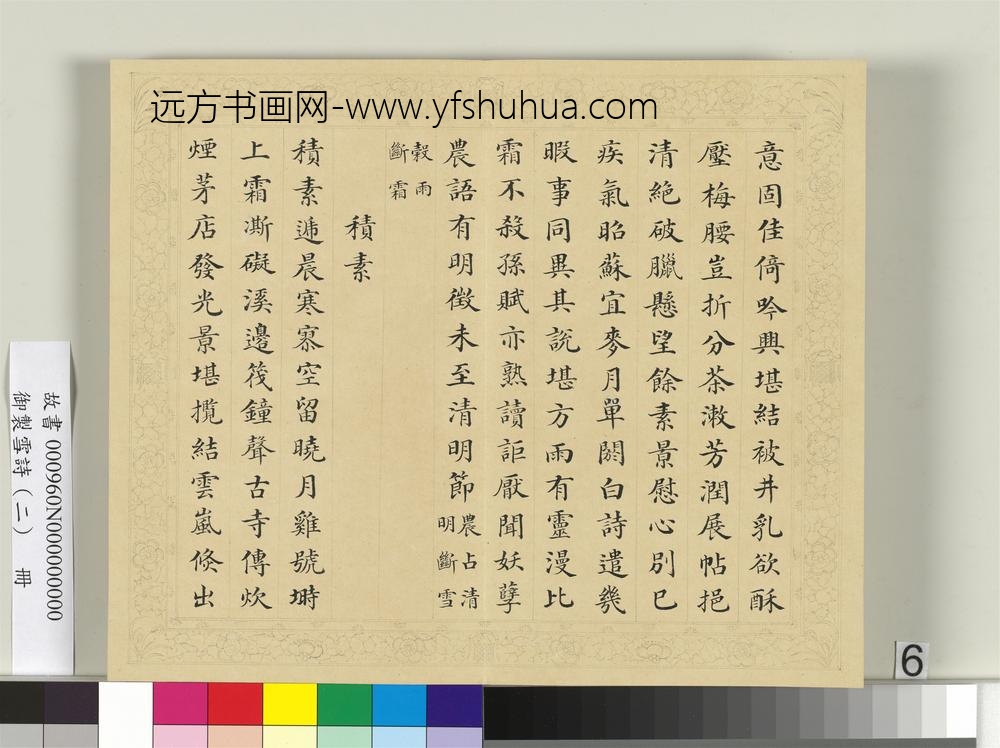 远方书画网-www.yfshuhua.com
意固佳倚吟興堪結被井乳欲酥
壓梅腰豈折分茶漱芳潤展帖挹
清絶破臘懸望餘素景慰心別已
疾氣昭蘇宜麥月單閼白詩遣幾
暇事同異其說堪方雨有靈漫比
霜不殺孫賦亦熟讀詎厭聞妖孽
農語有明徵未至清明節農占清明斷雪
穀雨斷霜
積素
積素遞晨寒寡空留曉月雞號塒
上霜澌礙溪邊筏鐘聲古寺傳炊
煙茅店發光景堪攬結雲嵐倏出
故書 000960N000000000
御製雪詩(二) 冊
6